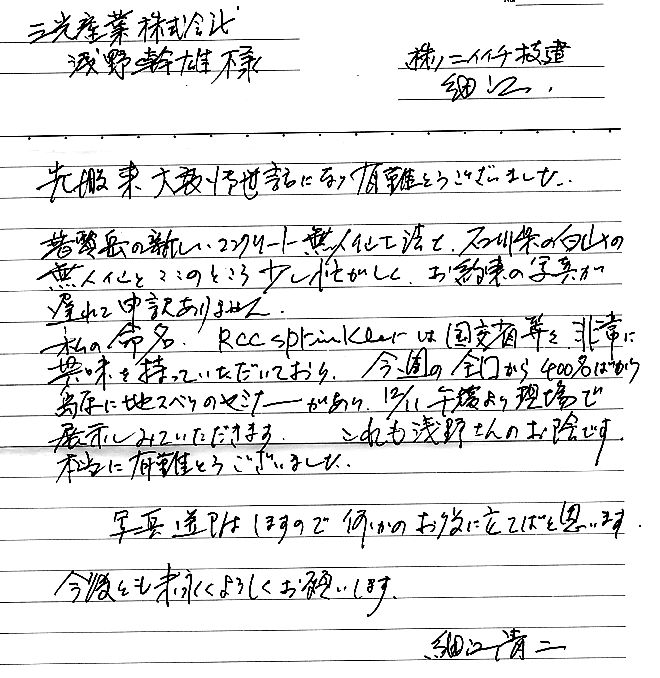 三光産業株式会社
浅野幹雄様
株)ニイチ技建
細江.
先般来 大変お世話になり有難とうございました.
普賢岳の新しいコンクリート無人化工法と、石川県の白山の
無人化とここのところ少し忙がしく、お約束の写真が
遅れて申訳ありません.
私の命名. RCC sprinklerは国交省等を 非常に
興味を持っていただいており、今週の全国から400名ばかり
島原に地スベリのセミナーがあり、12/11 午後より現場で
展示しみていただきます. これも浅野さんのお陰です.
本当に有難とうございました.
写真送りはしますので何かのお役に立てばと思います.
今後とも末永くよろしくお願いします.
細江清二